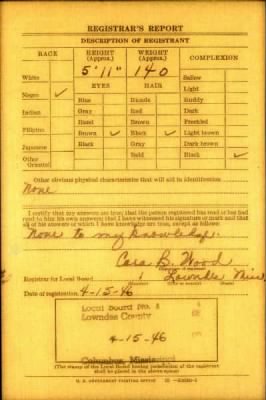 REGISTRAR'S REPORT
DESCRIPTION OF REGISTRANT
RACE HEIGHT (Approx.) WEIGHT (Approx.) COMPLEXION
5' 11" 140
White Sallow
EYES HAIR Light
Negro ✓ Blue Blonde Ruddy
Gray Red Dark
Indian Hazel Brown Freckled
Filipino Brown ✓ Black ✓ Light brown
Japanese Black Gray Dark brown
Other Oriental Bald Black ✓
Other obvious physical characteristics that will aid in identification
None
I certify that my answers are true; that the person registered has read or has had
read to him his own answers; that I have witnessed his signature or mark and that
all of his answers of which I have knowledge are true, except as follows:
None to my knowledge.
B. Wood
Registrar for Local Board 1 Lowndes Miss.
Date of registration 4-15-46
Local Board No. 1
Lowndes County
4-15-46
Columbus, Mississippi
(The stamp of the Local Board having jurisdiction of the registrant
shall be placed in the above space)
U. S. GOVERNMENT PRINTING OFFICE